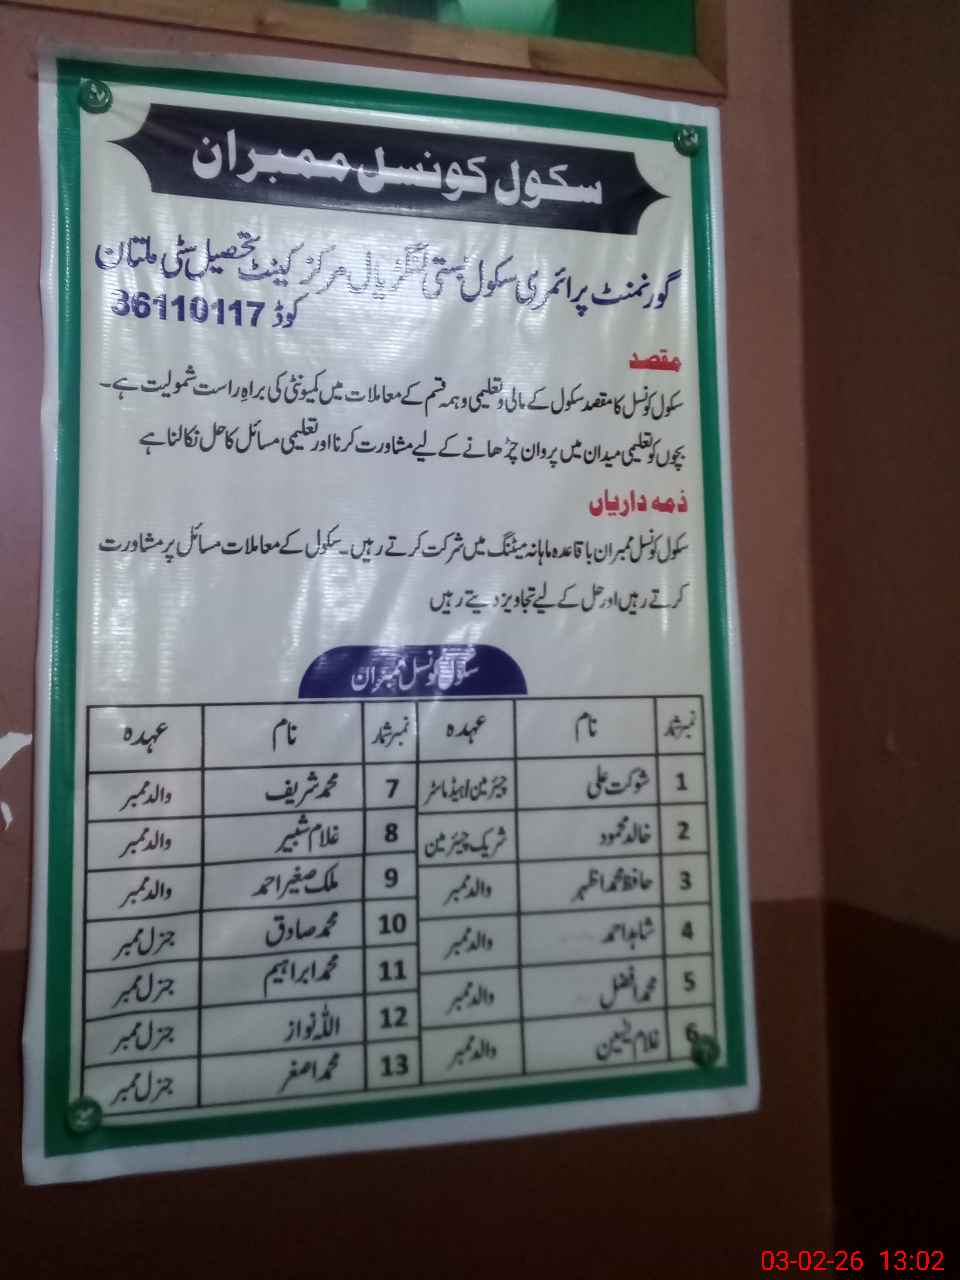 سکول کونسل ممبران
گورنمنٹ پرائمری سکول بستی لنگڑیال مرکز کینٹ تحصیل سٹی ملتان
کوڈ 36110117
مقصد
سکول کونسل کا مقصد سکول کے مالی و تعلیمی و ہمہ قسم کے معاملات میں کمیونٹی کی براہِ راست شمولیت ہے۔
بچوں کو تعلیمی میدان میں پروان چڑھانے کے لیے مشاورت کرنا اور تعلیمی مسائل کا حل نکالنا ہے
ذمہ داریاں
سکول کونسل ممبران باقاعدہ ماہانہ میٹنگ میں شرکت کرتے رہیں۔ سکول کے معاملات مسائل پر مشاورت
کرتے رہیں اور حل کے لیے تجاویز دیتے رہیں
سکول کونسل ممبران
نمبر شمار نام عہدہ نمبر شمار نام عہدہ
1 شوکت علی چیئرمین/ہیڈ ماسٹر 7 محمد شریف والد ممبر
2 خالد محمود شریک چیئرمین 8 غلام شبیر والد ممبر
3 حافظ محمد اظہر والد ممبر 9 ملک صغیر احمد والد ممبر
4 شاہد احمد والد ممبر 10 محمد صادق جنرل ممبر
5 محمد افضل والد ممبر 11 محمد ابراہیم جنرل ممبر
6 غلام یٰسین والد ممبر 12 اللہ نواز جنرل ممبر
13 محمد اصغر جنرل ممبر
03-02-26 13:02